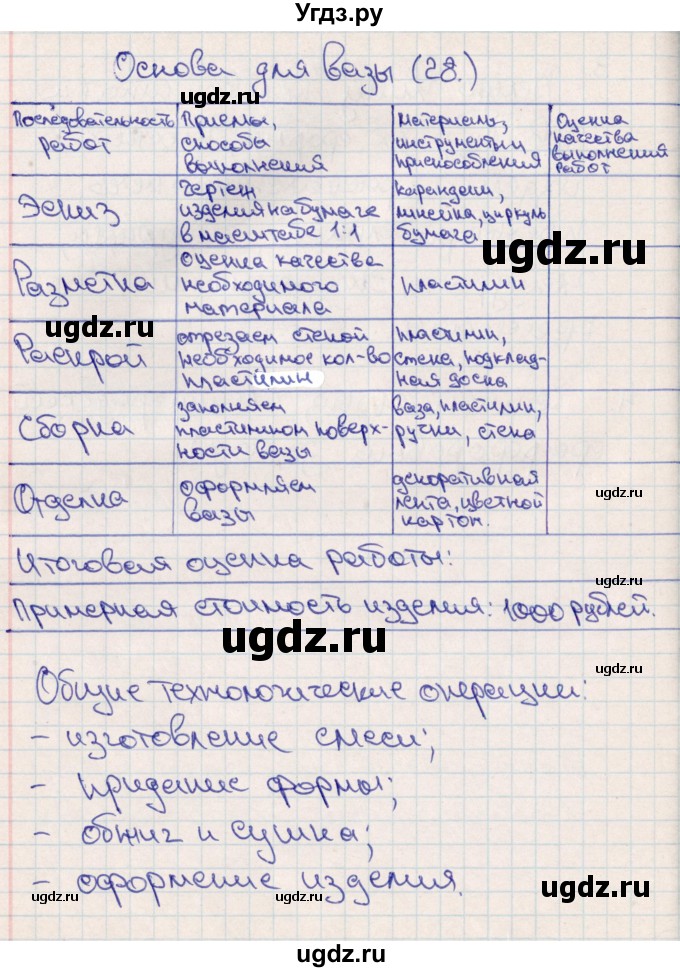 Угдз.ру
Основа для вазы (28.)
ugdz.ru
Последовательность работ
Приемы, способы выполнения
Материалы, инструменты и приспособления
Оценка качества выполнения работ
Эскиз
чертеж изделия на бумаге в масштабе 1:1
карандаш, линейка, циркуль бумага
Разметка
оценка качества необходимого материала
пластилин
ugdz.ru
Раскрой
отрезаем стекой необходимое кол-во пластилин
пластилин, стека, подкладная доска
Сборка
заполняем пластилином поверхности вазы
ваза, пластилин, ручки, стека
Отделка
оформляем вазы
декоративная лента, цветной картон.
ugdz.ru
Итоговая оценка работы:
ugdz.ru
Примерная стоимость изделия: 1000 рублей.
ugdz.ru
ugdz.ru
Общие технологические операции:
- изготовление смеси;
- придание формы;
- обжиг и сушка;
- оформление изделия.
ugdz.ru
ugdz.ru
ugdz.ru
ugdz.ru